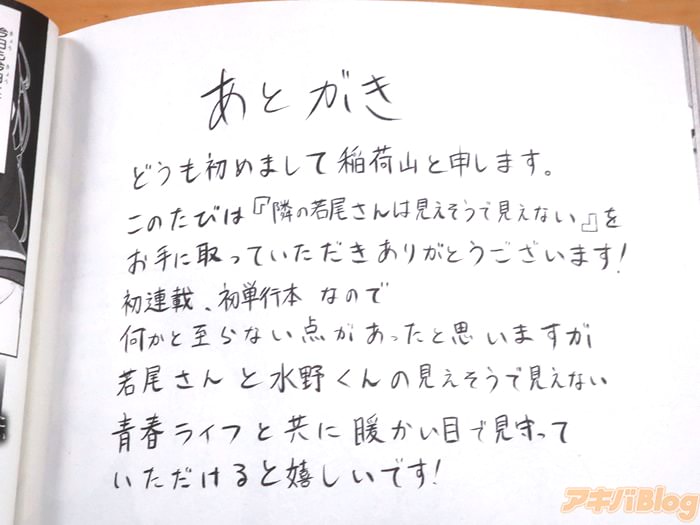 あとがき
どうも初めまして稲荷山と申します。
このたびは『隣の若尾さんは見えそうで見えない』を
お手に取っていただきありがとうございます!
初連載、初単行本なので
何かと至らない点があったと思いますが
若尾さんと水野くんの見えそうで見えない
青春ライフと共に暖かい目で見守って
いただけると嬉しいです!
アキバBlog